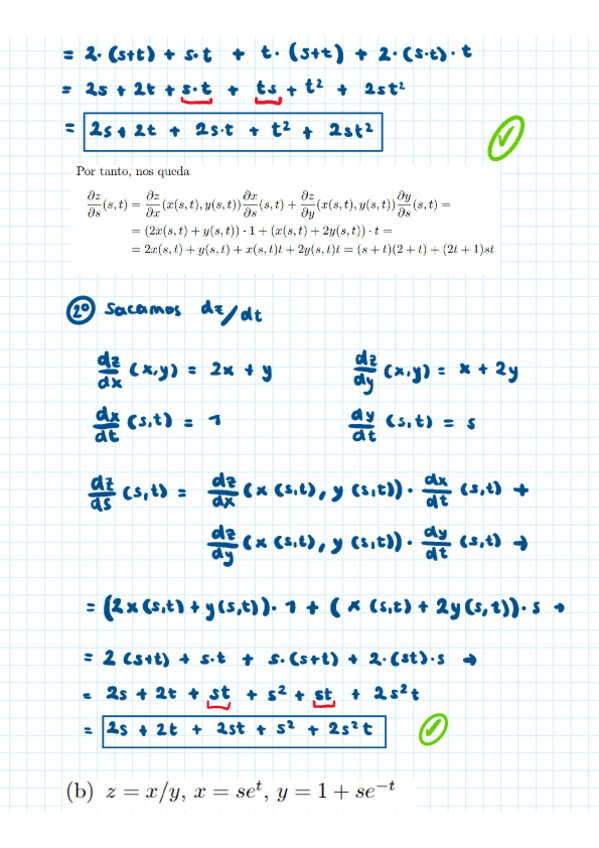 = 2·(s+t) + s·t + t·(s+t) + 2·(s·t)·t
= 2s + 2t + s·t + ts + t² + 2st²
= 2s + 2t + 2s·t + t² + 2st²
Por tanto, nos queda
∂z/∂s (s, t) = ∂z/∂x (x(s, t), y(s, t)) ∂x/∂s (s, t) + ∂z/∂y (x(s, t), y(s, t)) ∂y/∂s (s, t) =
= (2x(s, t) + y(s, t)) · 1 + (x(s, t) + 2y(s, t)) · t =
= 2x(s, t) + y(s, t) + x(s, t)t + 2y(s, t)t = (s + t)(2 + t) + (2t + 1)st
2º Sacamos dz/dt
dz/dx (x,y) = 2x + y dz/dy (x,y) = x + 2y
dx/dt (s,t) = 1 dy/dt (s,t) = s
dz/ds (s,t) = dz/dx (x (s,t), y (s,t)) · dx/dt (s,t) +
dz/dy (x (s,t), y (s,t)) · dy/dt (s,t) →
= (2x(s,t) + y(s,t)) · 1 + (x (s,t) + 2y(s,t)) · s →
= 2 (s+t) + s·t + s·(s+t) + 2·(st)·s →
= 2s + 2t + st + s² + st + 2s²t
= 2s + 2t + 2st + s² + 2s²t
(b) z = x/y, x = seᵗ, y = 1 + se⁻ᵗ